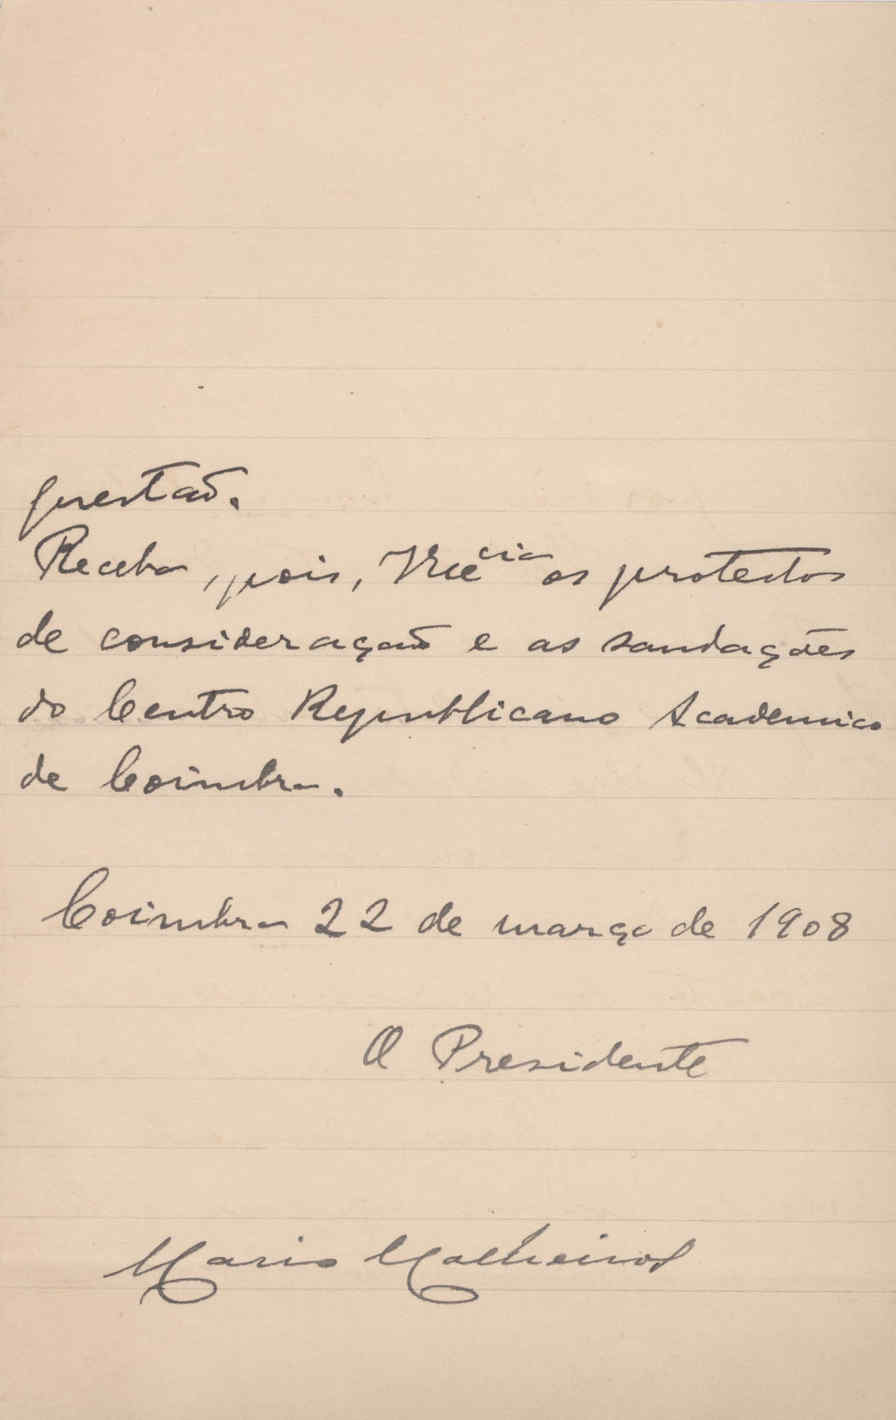 questão.
Receba, pois, V.Ex.cia os protestos
de consideração e as saudações
do Centro Republicano Academico
de Coimbra.
Coimbra 22 de março de 1908
O Presidente
Mario Malheiros